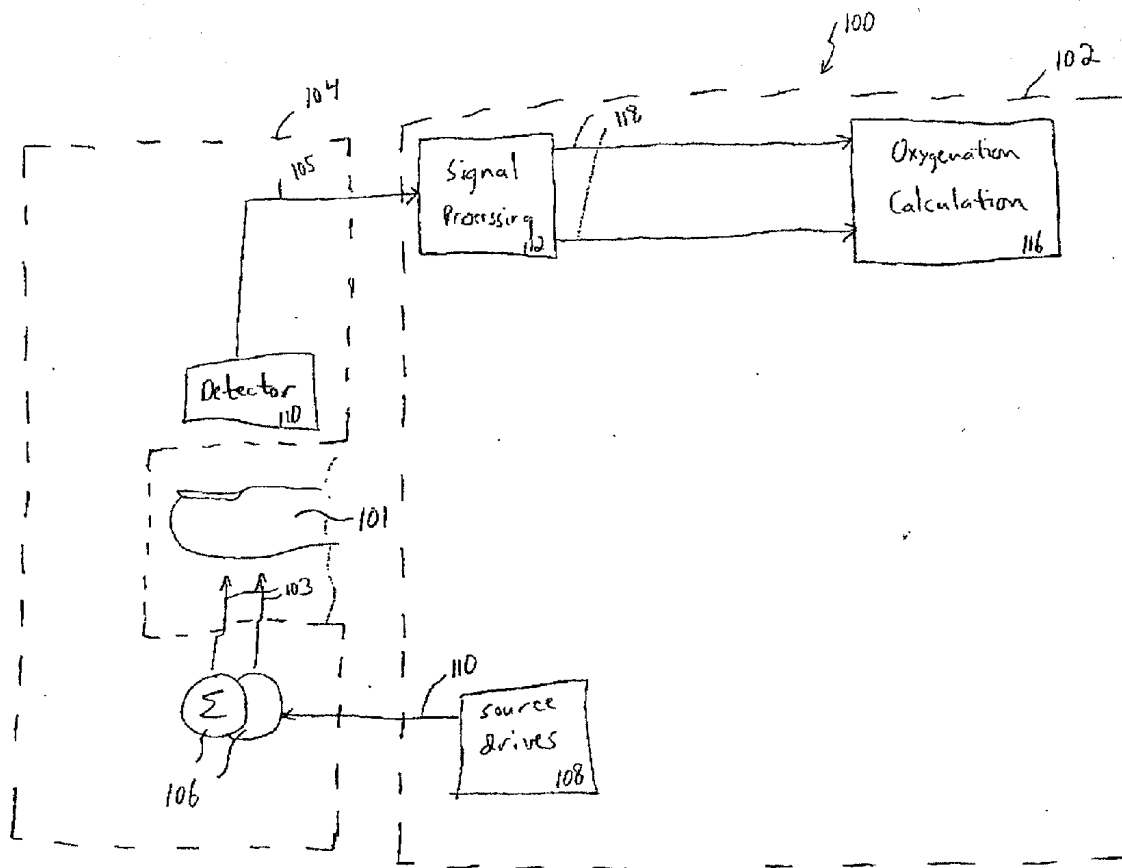 100
102
104
118
105
Signal
Processing
112
Oxygenation
Calculation
116
Detector
110
101
103
110
Σ
source
drives
108
106